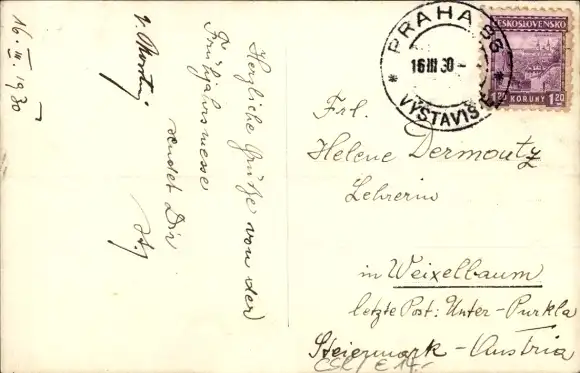 16. III 1930
Herzliche Grüße von der
Frühjahrsmesse
sendet Dir
PRAHA 86
16 III 30
VÝSTAVIŠTĚ
ČESKOSLOVENSKO
1.20 KORUNY 1.20
Frl.
Helene Dermoutz
Lehrerin
in Weixelbaum
letzte Post: Unter-Purkla
Steiermark - Austria